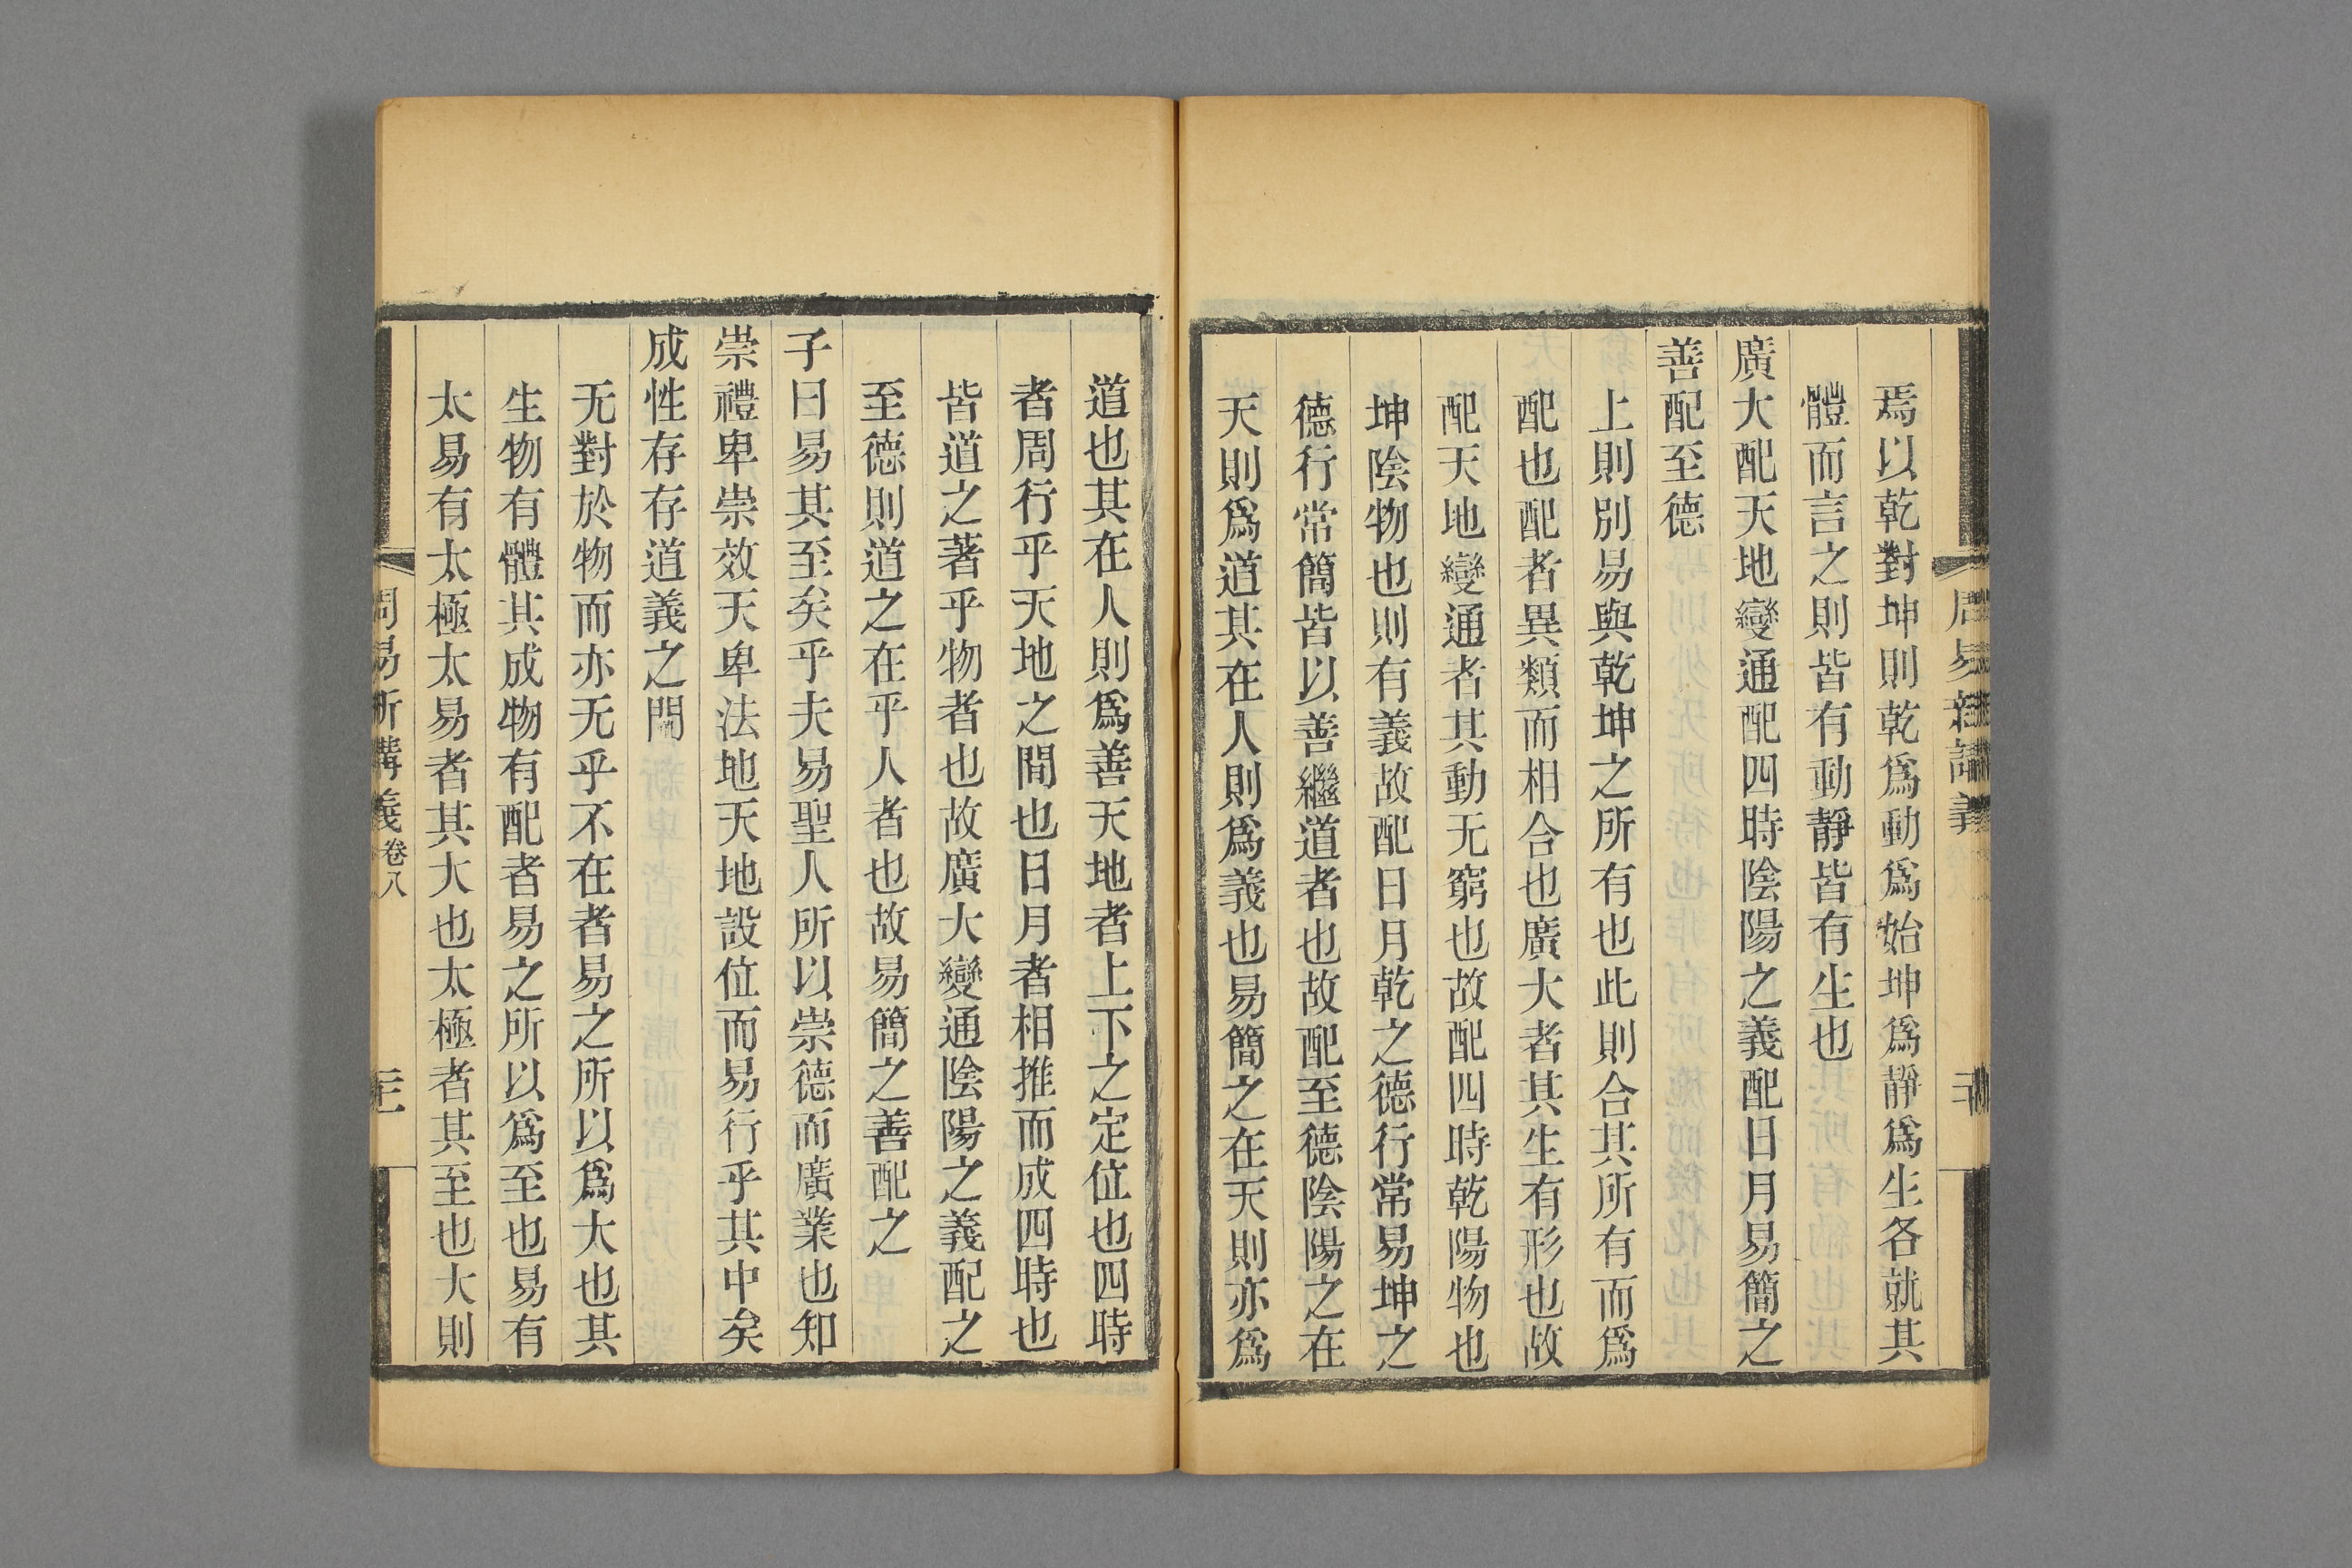 焉以乾對坤則乾爲動爲始坤爲靜爲生各就其
體而言之則皆有動靜皆有生也
廣大配天地變通配四時陰陽之義配日月易簡之
善配至德
上則別易與乾坤之所有也此則合其所有而爲
配也配者異類而相合也廣大者其生有形也故
配天地變通者其動无窮也故配四時乾陽物也
坤陰物也則有義故配日月乾之德行常易坤之
德行常簡皆以善繼道者也故配至德陰陽之在
天則爲道其在人則爲義也易簡之在天則亦爲
道也其在人則爲善天地者上下之定位也四時
者周行乎天地之間也日月者相推而成四時也
皆道之著乎物者也故廣大變通陰陽之義配之
至德則道之在乎人者也故易簡之善配之
子曰易其至矣乎夫易聖人所以崇德而廣業也知
崇禮卑崇效天卑法地天地設位而易行乎其中矣
成性存存道義之門
无對於物而亦无乎不在者易之所以爲大也其
生物有體其成物有配者易之所以爲至也易有
太易有太極太易者其大也太極者其至也大則
周易新講義卷八